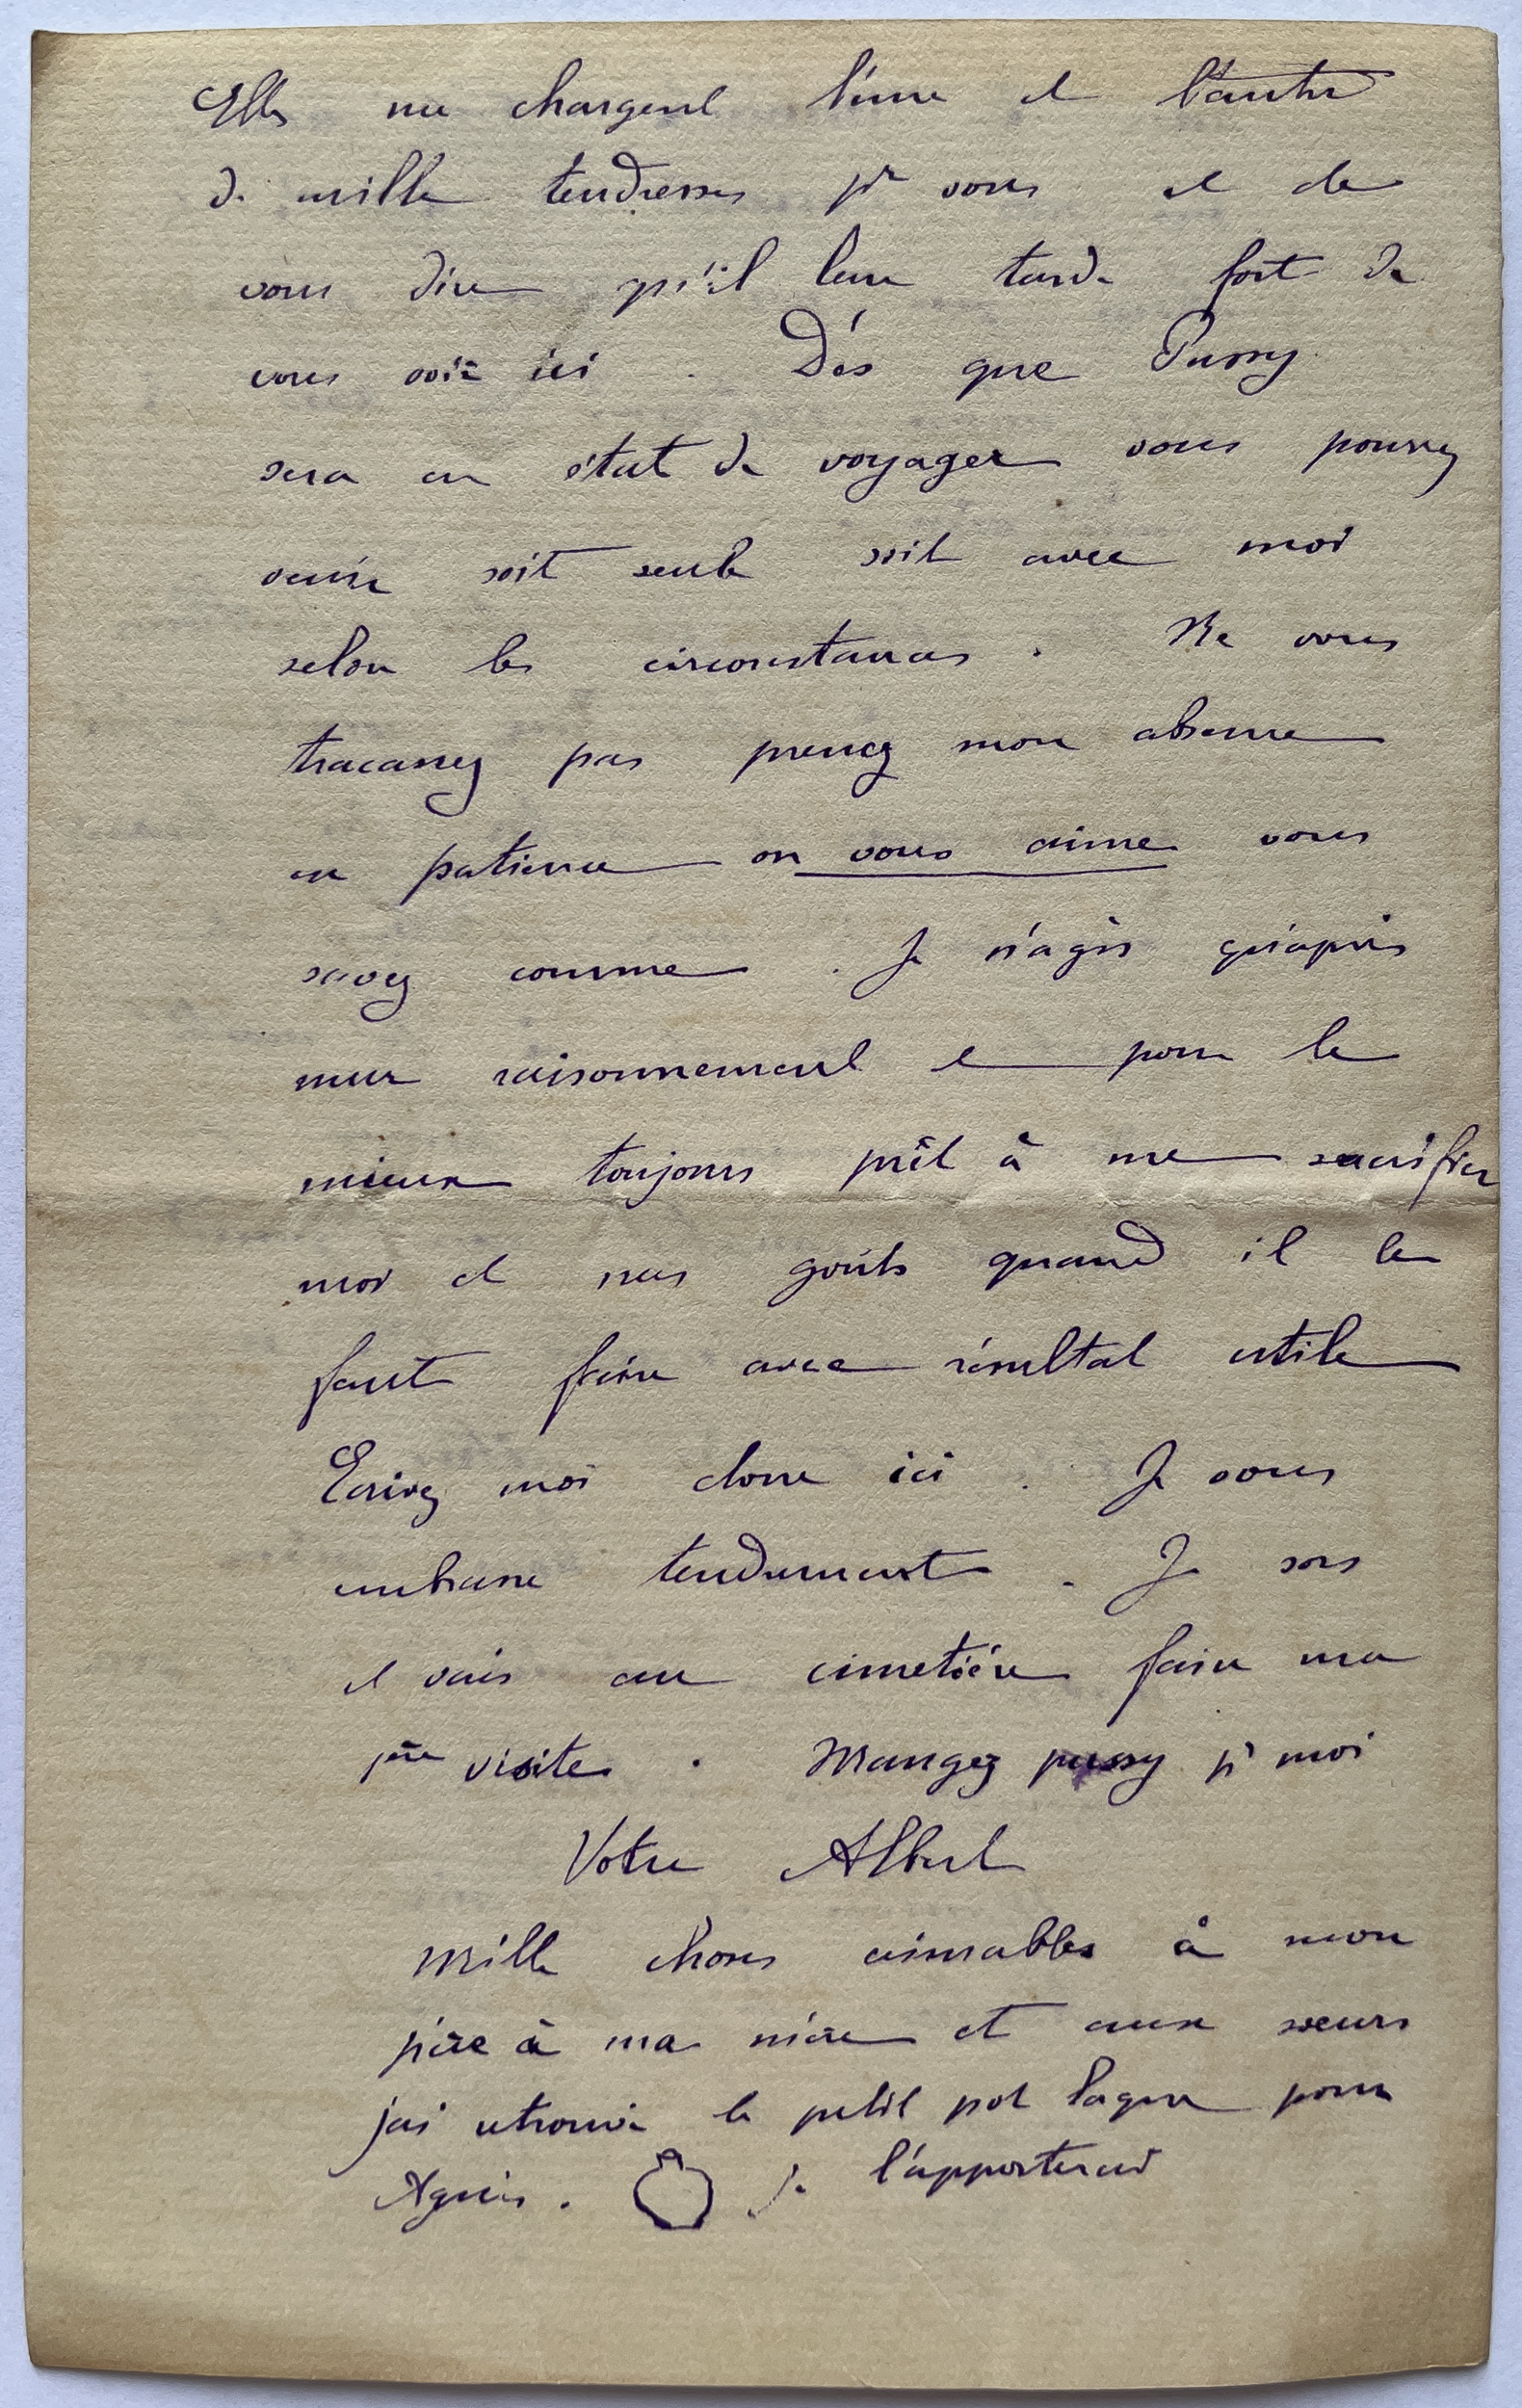 Elles me chargent l'une et l'autre
de mille tendresses pr vous et de
vous dire qu'il leur tarde fort de
vous voir ici. Dès que Pussy
sera en état de voyager vous pourrez
venir soit seule soit avec moi
selon les circonstances. Ne vous
tracassez pas prenez mon absence
en patience on vous aime vous
savez comme. Je n'agis qu'après
mur raisonnement et pour le
mieux toujours prêt à me sacrifier
moi et mes goûts quand il le
faut faire avec résultat utile
Ecrivez moi donc ici. Je vous
embrasse tendrement. Je sors
et vais au cimetière faire ma
1ère visite. Mangez pussy pr moi
Votre Albert
Mille choses aimables à mon
père à ma mère et aux soeurs
jai retrouvé le petit pot laque pour
Agnès. je l'apporterai